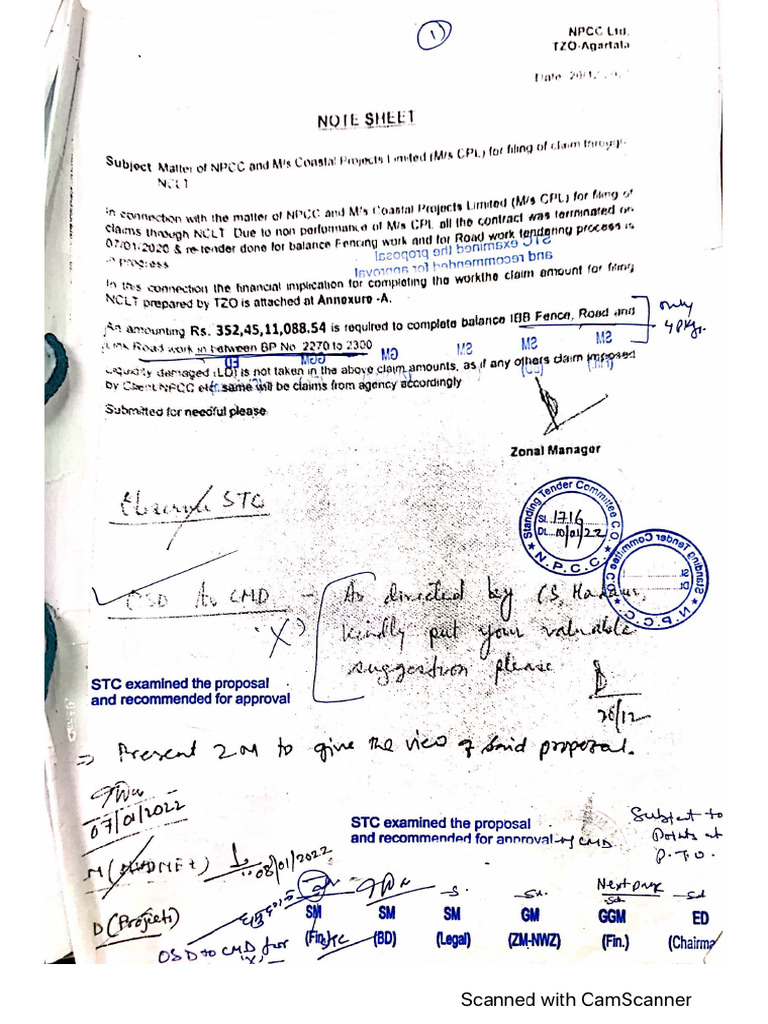 1
NPCC Ltd.
TZO-Agartala
Date
NOTE SHEET
Subject Matter of NPCC and M/s Coastal Projects Limited (M/s CPL) for filing of claim through
NCLT
In connection with the matter of NPCC and M/s Coastal Projects Limited (M/s CPL) for filing of
claims through NCLT Due to non performance of M/s CPL all the contract was terminated on
07/01/2020 & re-tender done for balance Fencing work and for Road work tendering process is
in progress
STC examined the proposal
and recommended for approval
In this connection the financial implication for completing the workthe claim amount for filing
NCLT prepared by TZO is attached at Annexure -A.
An amounting Rs. 352,45,11,088.54 is required to complete balance IBB Fence, Road and
Link Road work in between BP No. 2270 to 2300
only
4 pkgs.
SM SM SM GM GGM ED
Liquidity damaged (LD) is not taken in the above claim amounts, as if any others claim imposed
by Client NPCC etc. same will be claims from agency accordingly
Submitted for needful please
Zonal Manager
STC
Standing Tender Committee C.O.
Sl. 1716
Dt. 10/01/22
N.P.C.C.
Standing Tender Committee C.O.
Sl.
Dt.
N.P.C.C.
OSD to CMD - As directed by CS, Madam,
'X' Kindly put your valuable
suggestion please
STC examined the proposal
and recommended for approval
26/12
⇒ Present ZM to give the view of said proposal.
07/01/2022
STC examined the proposal
and recommended for approval of CMD
Subject to
Points at
P.T.O.
08/01/2022
D (Projects)
Next page
Sd. Sd. Sd.
SM SM SM GM GGM ED
(Fin) (BD) (Legal) (ZM-NWZ) (Fin.) (Chairma
OSD to CMD for
'X'
Scanned with CamScanner